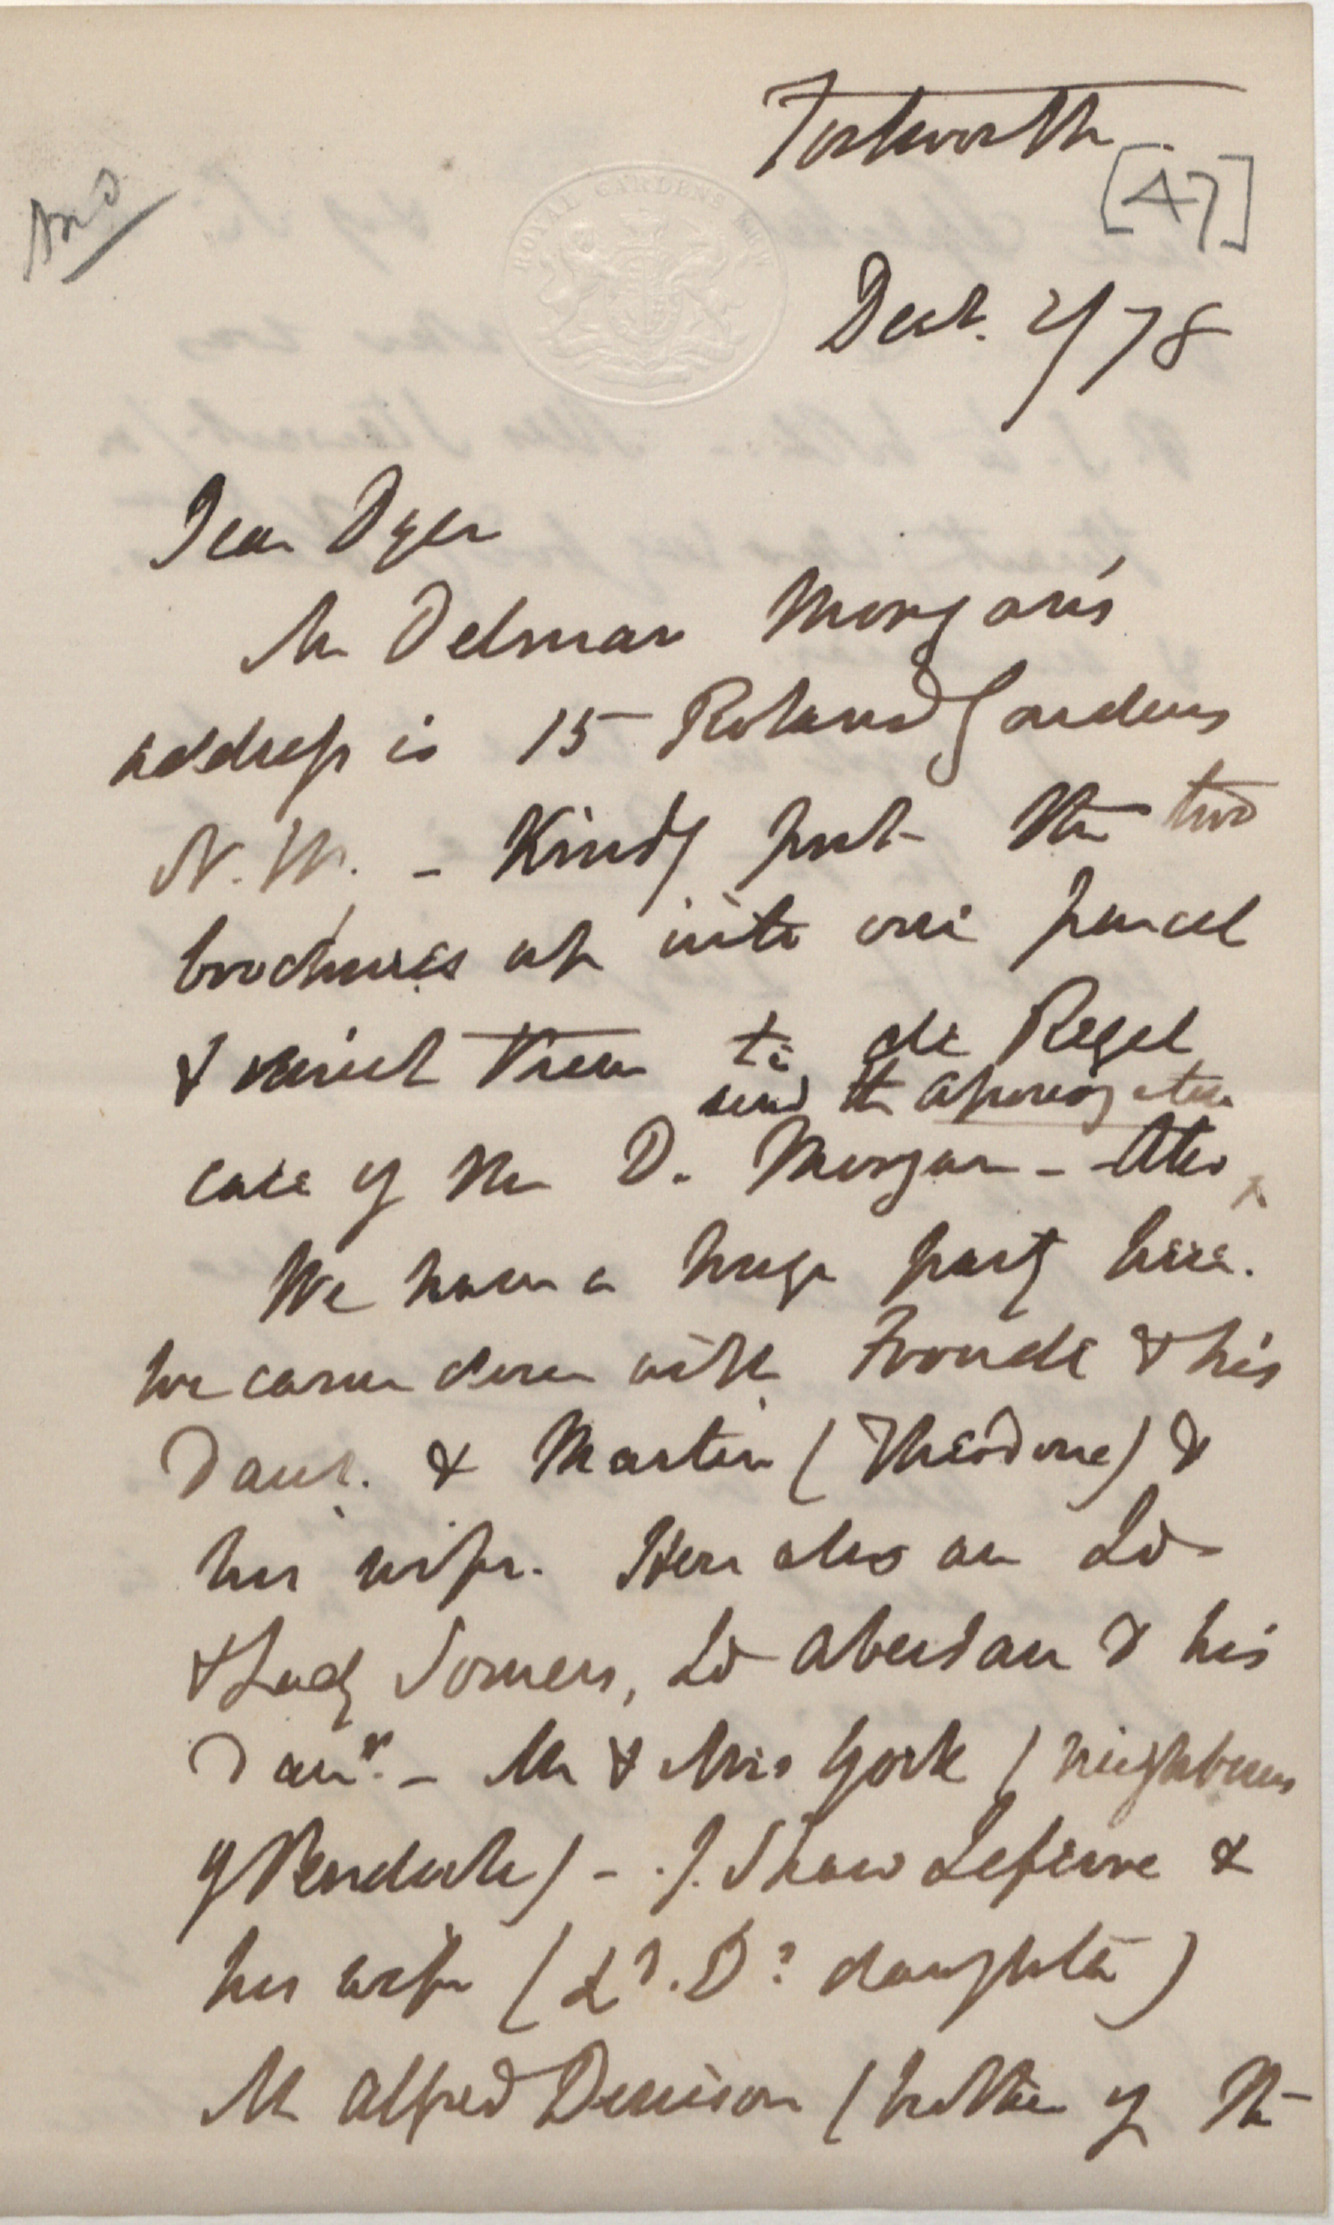 Tortworth
[47]
Ansd
ROYAL GARDENS KEW
Decr. 2/78
Dear Dyer
Mr Delmar Morgan's
address is 15 Roland Gardens
N.W. - Kindly put the two
brochures up into one parcel
& direct them to de Regel
send the Aponogeton
care of Mr D. Morgan - Also
We have a huge party here.
We came down with Froude & his
Daur. & Martin (Theodore) &
his wife. Here also are Ld
& Lady Somers, Ld Aberdare & his
Daur. - Mr & Mrs York (neighbours
of Pendock) - J. Shaw Lefevre &
his wife (Ld. D's daughter)
Mr Alfred Denison (brother of the